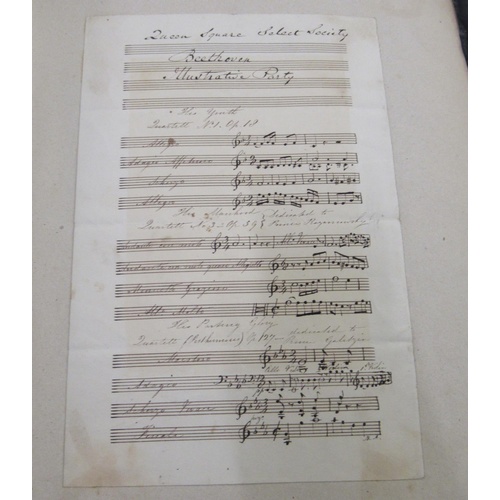 Queen Square Select Society
Beethoven
Illustrative Party
His Youth
Quartett No 1. Op 18
Allegro
Adagio Affettuoso
Scherzo
Allegro
His Manhood
Dedicated to
Quartett No 3 Op. 59
Andante con moto
Andante con moto quasi Allegtto
Menuetto Grazioso
Allo Molto
His
Glory
Quartett (Posthumous) Op 127
dedicated to
Maestoso
Adagio
Scherzo Vivace
Finale